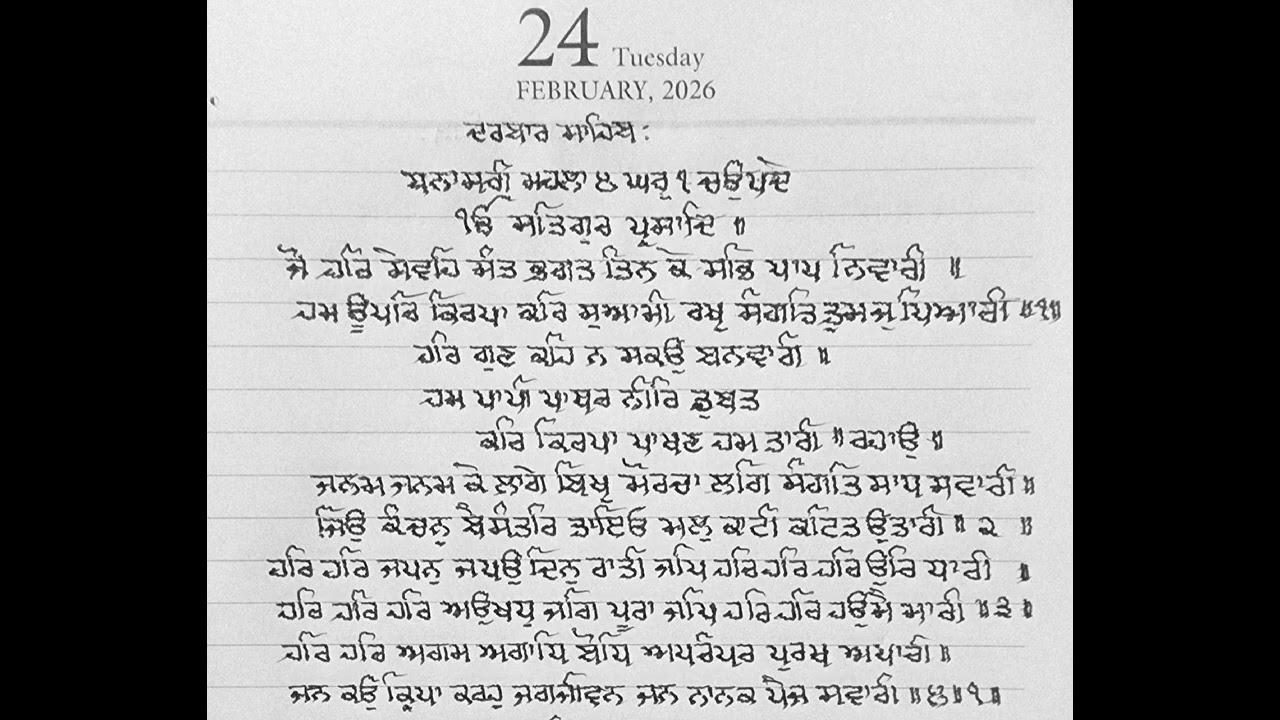 24 Tuesday
FEBRUARY, 2026
ਦਰਬਾਰ ਸਾਹਿਬ:
ਧਨਾਸਰੀ ਮਹਲਾ ੪ ਘਰੁ ੧ ਚਉਪਦੇ
ੴ ਸਤਿਗੁਰ ਪ੍ਰਸਾਦਿ ॥
ਜੋ ਹਰਿ ਸੇਵਹਿ ਸੰਤ ਭਗਤ ਤਿਨ ਕੇ ਸਭਿ ਪਾਪ ਨਿਵਾਰੀ ॥
ਹਮ ਊਪਰਿ ਕਿਰਪਾ ਕਰਿ ਸੁਆਮੀ ਰਖੁ ਸੰਗਤਿ ਤੁਮ ਜੁ ਪਿਆਰੀ ॥੧॥
ਹਰਿ ਗੁਣ ਕਹਿ ਨ ਸਕਉ ਬਨਵਾਰੀ ॥
ਹਮ ਪਾਪੀ ਪਾਥਰ ਨੀਰਿ ਡੁਬਤ
ਕਰਿ ਕਿਰਪਾ ਪਾਖਣ ਹਮ ਤਾਰੀ ॥ ਰਹਾਉ ॥
ਜਨਮ ਜਨਮ ਕੇ ਲਾਗੇ ਬਿਖੁ ਮੋਰਚਾ ਲਗਿ ਸੰਗਤਿ ਸਾਧ ਸਵਾਰੀ ॥
ਜਿਉ ਕੰਚਨੁ ਬੈਸੰਤਰਿ ਤਾਇਓ ਮਲੁ ਕਟੀ ਕਟਿਤ ਉਤਾਰੀ ॥ ੨ ॥
ਹਰਿ ਹਰਿ ਜਪਨੁ ਜਪਉ ਦਿਨੁ ਰਾਤੀ ਜਪਿ ਹਰਿ ਹਰਿ ਹਰਿ ਉਰਿ ਧਾਰੀ ॥
ਹਰਿ ਹਰਿ ਹਰਿ ਅਉਖਧੁ ਜਗਿ ਪੂਰਾ ਜਪਿ ਹਰਿ ਹਰਿ ਹਉਮੈ ਮਾਰੀ ॥੩॥
ਹਰਿ ਹਰਿ ਅਗਮ ਅਗਾਧਿ ਬੋਧਿ ਅਪਰੰਪਰ ਪੁਰਖ ਅਪਾਰੀ ॥
ਜਨ ਕਉ ਕ੍ਰਿਪਾ ਕਰਹੁ ਜਗਜੀਵਨ ਜਨ ਨਾਨਕ ਪੈਜ ਸਵਾਰੀ ॥੪॥੧॥